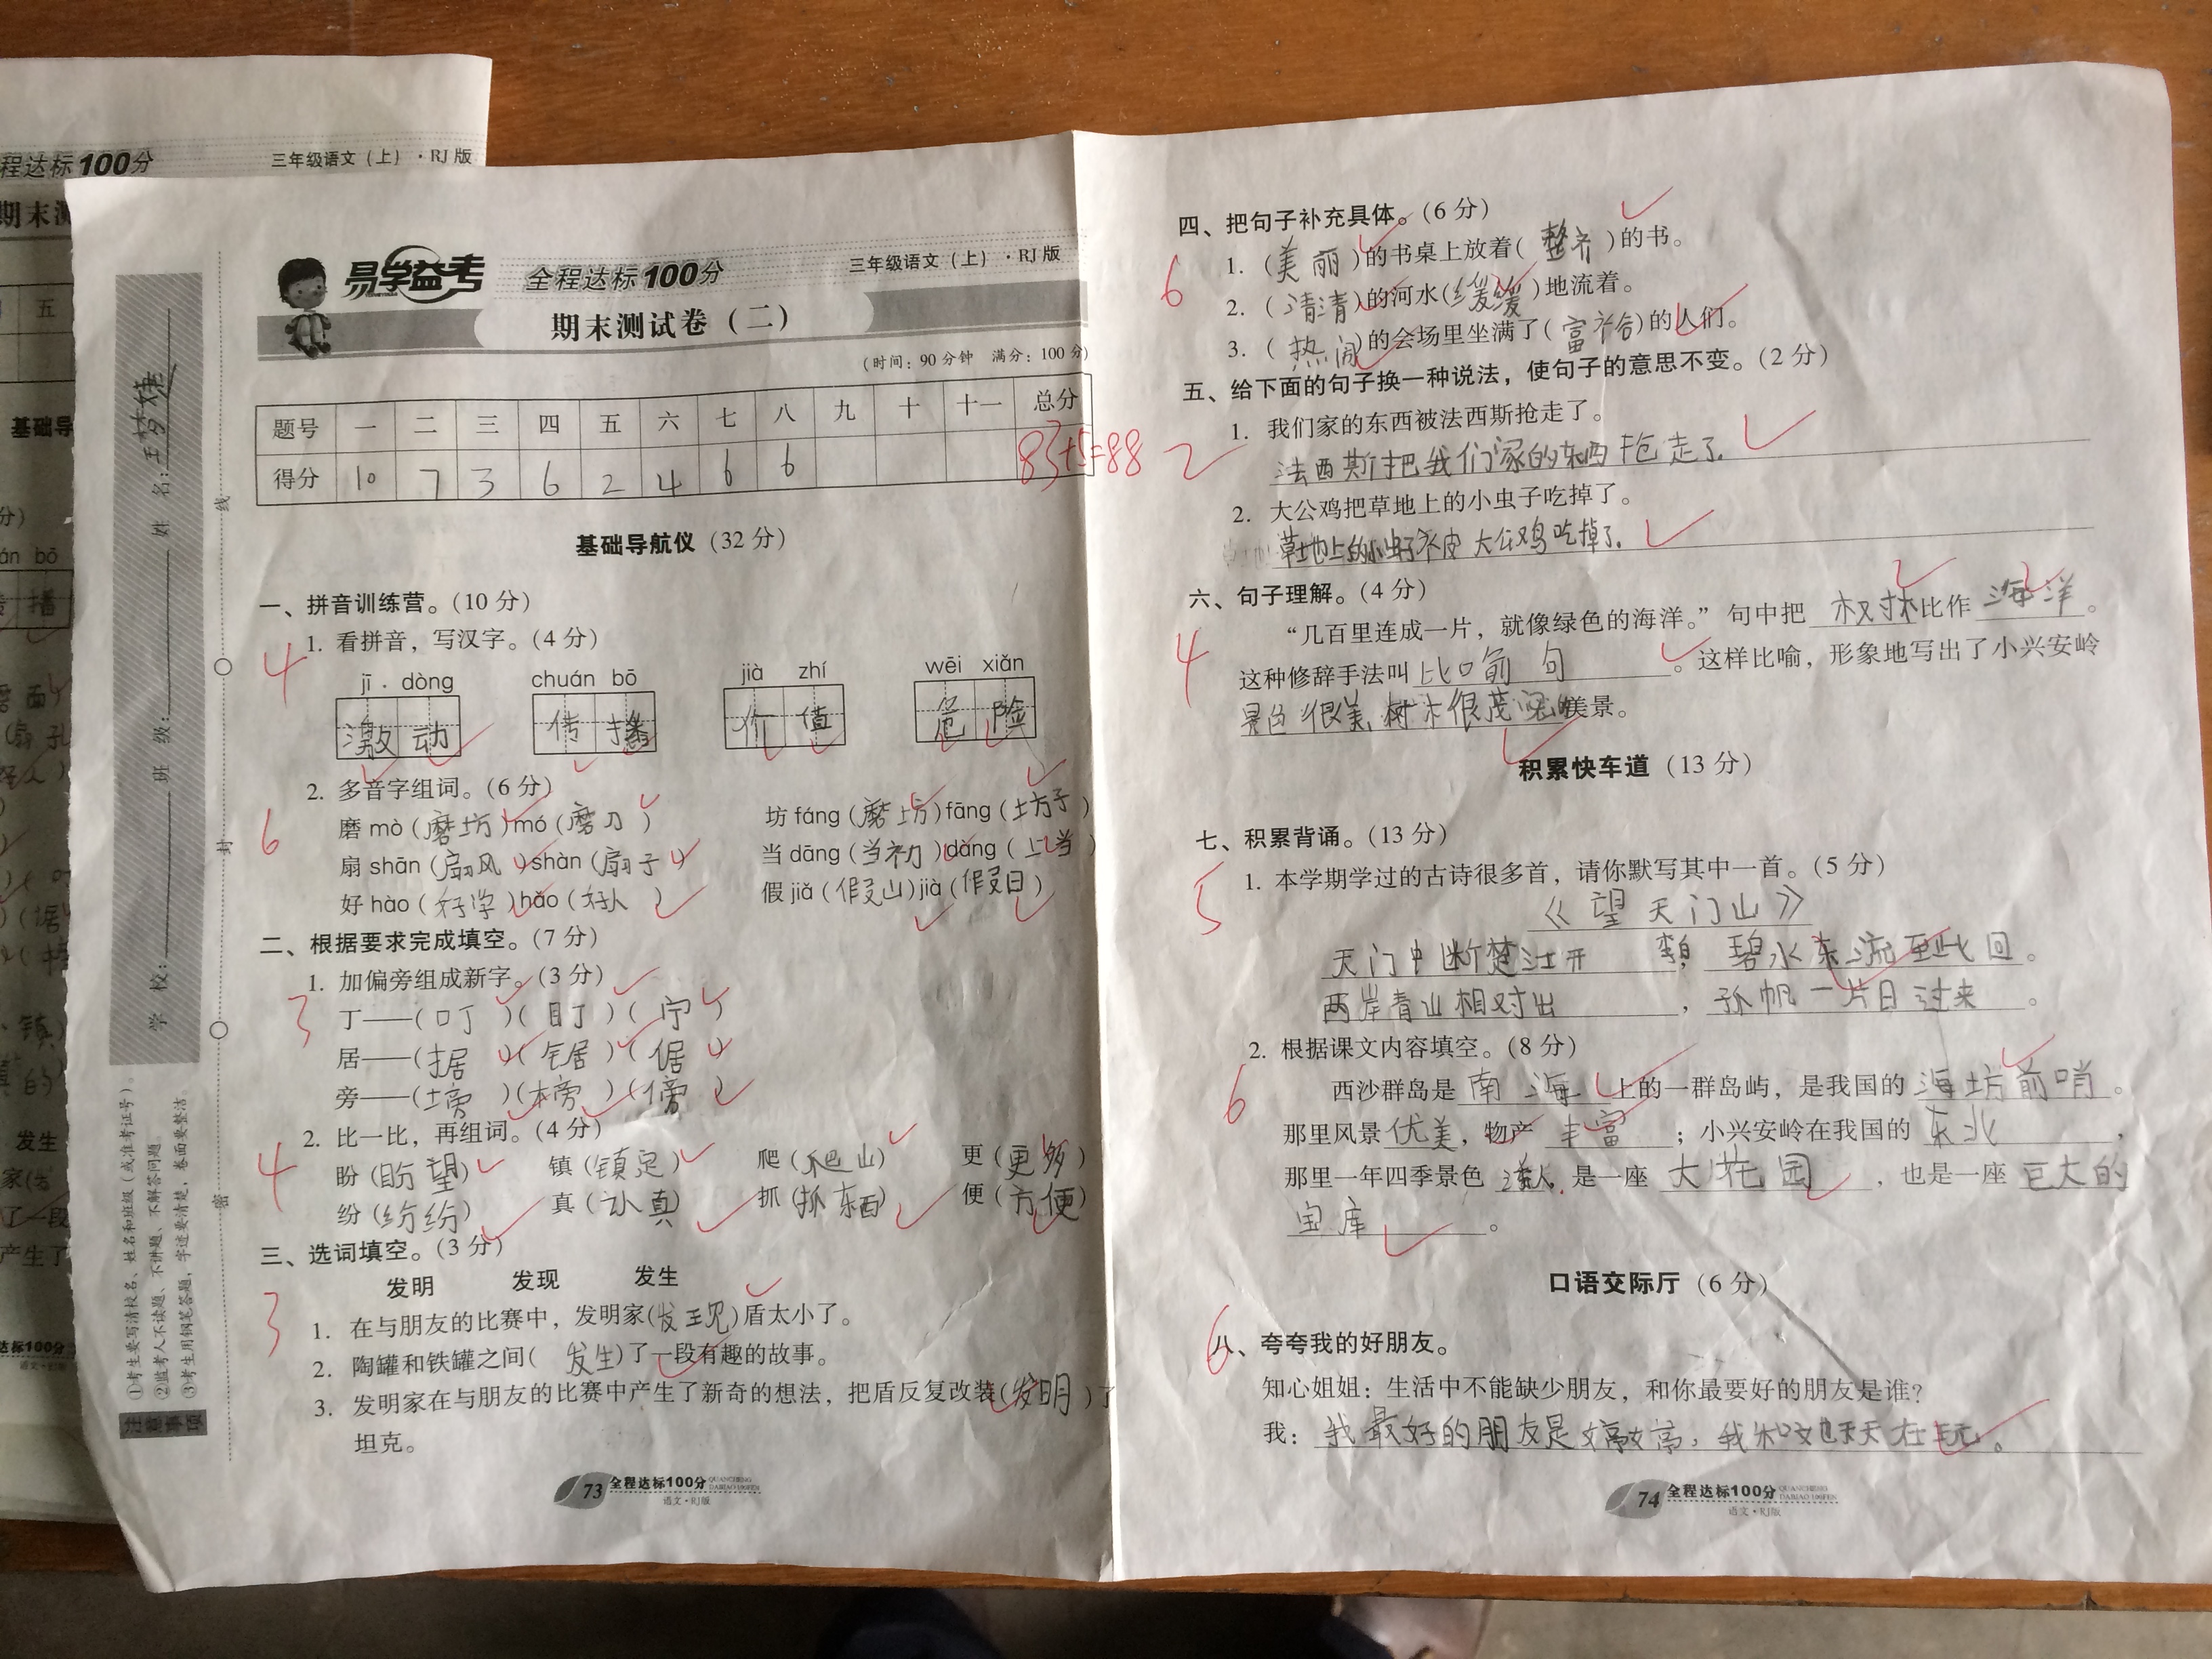 程达标100分
三年级语文（上）·RJ版
期末测
五
基础导
分）
án bō
播
发生
了一段
产生了
达标100分
语文·RJ版
学 校:
班 级:
姓 名:
密
封
线
注意事项
①考生要写清校名、姓名和班级（或准考证号）。
②监考人不读题、不讲题、不解答问题。
③考生用钢笔答题，字迹要清楚，卷面要整洁
易学益考
全程达标100分
三年级语文（上）·RJ版
期末测试卷（二）
（时间：90分钟 满分：100分）
题号 一 二 三 四 五 六 七 八 九 十 十一 总分
得分 10 7 3 6 2 4 6 6 83+5=88
基础导航仪（32分）
一、拼音训练营。（10分）
4
1. 看拼音，写汉字。（4分）
jī dòng chuán bō jià zhí wēi xiǎn
激动 传播 价值 危险
2. 多音字组词。（6分）
6
磨 mò（磨坊）mó（磨刀） 坊 fáng（磨坊）fāng（坊子）
扇 shān（扇风）shàn（扇子） 当 dāng（当初）dàng（上当）
好 hào（好学）hǎo（好人） 假 jiǎ（假山）jià（假日）
二、根据要求完成填空。（7分）
3
1. 加偏旁组成新字。（3分）
丁——（叮）（盯）（宁）
居——（据）（锯）（倨）
旁——（塝）（榜）（傍）
4
2. 比一比，再组词。（4分）
盼（盼望） 镇（镇定） 爬（爬山） 更（更多）
纷（纷纷） 真（认真） 抓（抓东西） 便（方便）
三、选词填空。（3分）
3
发明 发现 发生
1. 在与朋友的比赛中，发明家（发现）盾太小了。
2. 陶罐和铁罐之间（发生）了一段有趣的故事。
3. 发明家在与朋友的比赛中产生了新奇的想法，把盾反复改装（发明）了
坦克。
73 全程达标100分 QUANCHENG DABIAO 100FEN
语文·RJ版
四、把句子补充具体。（6分）
6
1. （美丽）的书桌上放着（整齐）的书。
2. （清清）的河水（缓缓）地流着。
3. （热闹）的会场里坐满了（富裕）的人们。
五、给下面的句子换一种说法，使句子的意思不变。（2分）
2
1. 我们家的东西被法西斯抢走了。
法西斯把我们家的东西抢走了.
2. 大公鸡把草地上的小虫子吃掉了。
草地上的小虫子被大公鸡吃掉了.
六、句子理解。（4分）
4
“几百里连成一片，就像绿色的海洋。”句中把 树林 比作 海洋。
这种修辞手法叫 比喻句 。这样比喻，形象地写出了小兴安岭
景色很美,树木很茂密的美景。
积累快车道（13分）
七、积累背诵。（13分）
5
1. 本学期学过的古诗很多首，请你默写其中一首。（5分）
《望天门山》
天门中断楚江开 李白， 碧水东流至此回 。
两岸青山相对出 ， 孤帆一片日过来 。
2. 根据课文内容填空。（8分）
6
西沙群岛是 南海 上的一群岛屿，是我国的 海坊前哨 。
那里风景 优美，物产 丰富 ；小兴安岭在我国的 东北 ，
那里一年四季景色 是一座 大花园 ，也是一座 巨大的
宝库 。
口语交际厅（6分）
6
八、夸夸我的好朋友。
知心姐姐：生活中不能缺少朋友，和你最要好的朋友是谁？
我：我最好的朋友是婷婷，我和她天天在玩。
74 全程达标100分 QUANCHENG DABIAO 100FEN
语文·RJ版